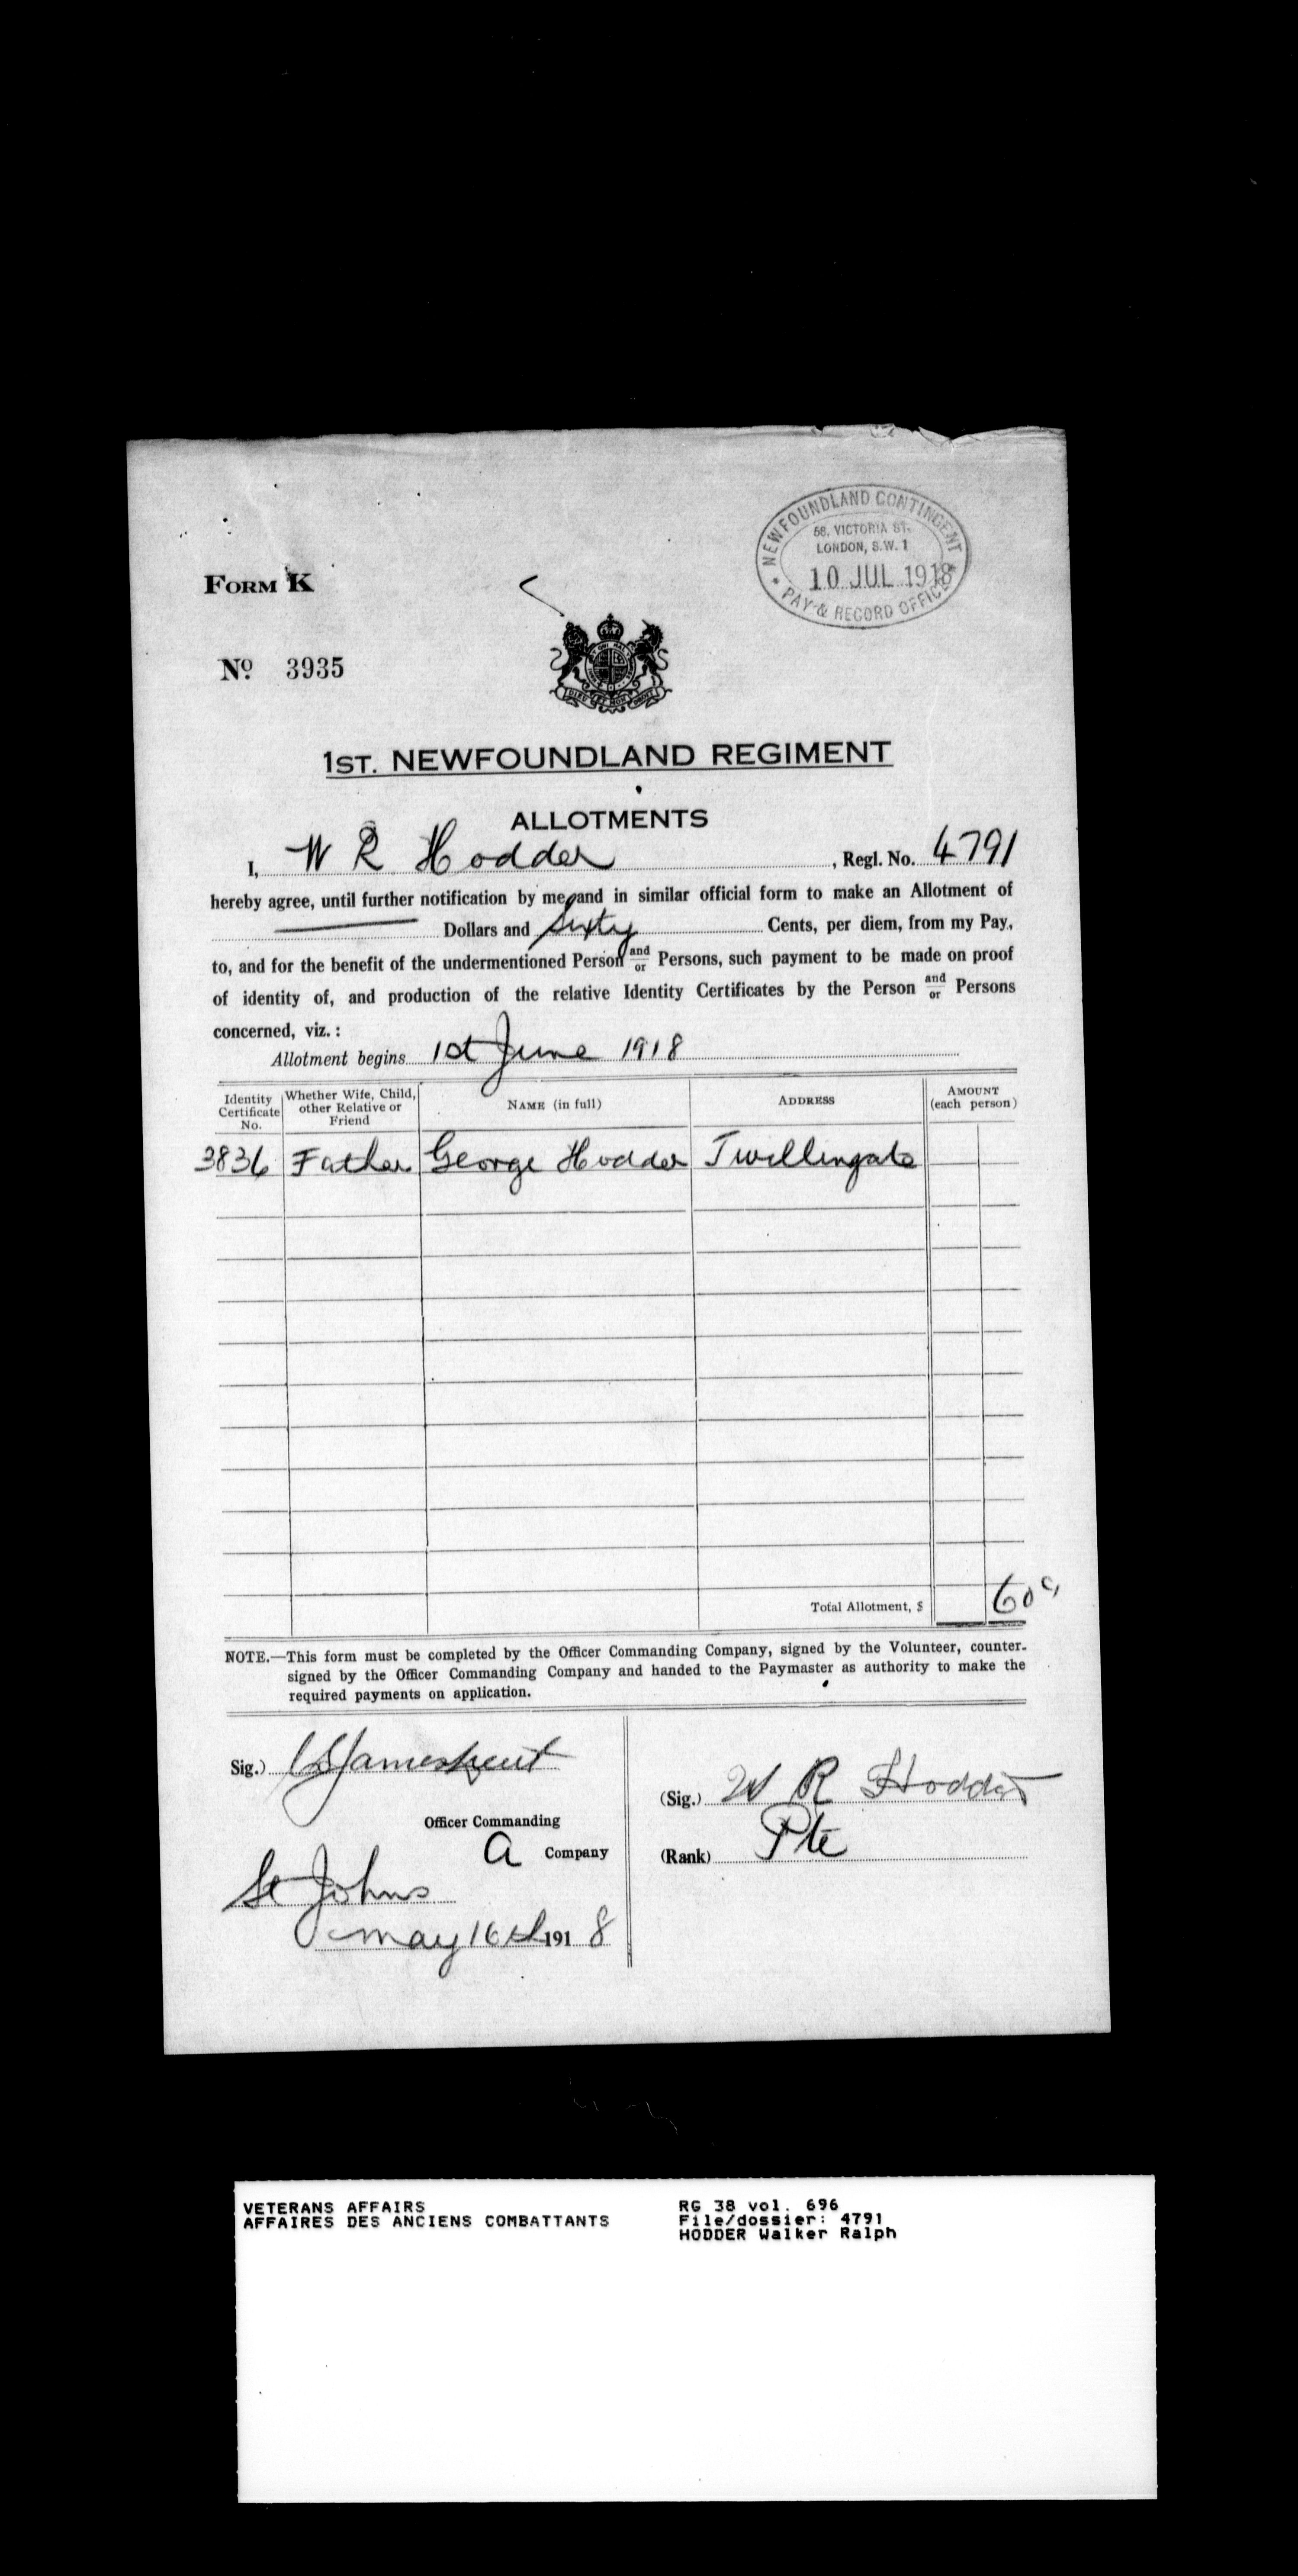 NEWFOUNDLAND CONTINGENT
58, VICTORIA ST.
LONDON, S.W. 1
10 JUL 1918
PAY & RECORD OFFICE
FORM K
No. 3935
1ST. NEWFOUNDLAND REGIMENT
ALLOTMENTS
I, W R Hodder, Regl. No. 4791
hereby agree, until further notification by me, and in similar official form to make an Allotment of
— Dollars and Sixty Cents, per diem, from my Pay,
to, and for the benefit of the undermentioned Person and/or Persons, such payment to be made on proof
of identity of, and production of the relative Identity Certificates by the Person and/or Persons
concerned, viz. :
Allotment begins 1st June 1918
Identity Certificate No. Whether Wife, Child, other Relative or Friend NAME (in full) ADDRESS AMOUNT (each person)
3836 Father George Hodder Twillingate
Total Allotment, $ 60c
NOTE.—This form must be completed by the Officer Commanding Company, signed by the Volunteer, counter-
signed by the Officer Commanding Company and handed to the Paymaster as authority to make the
required payments on application.
Sig.)
Officer Commanding
A Company
St Johns
May 16th 1918
(Sig.) W R Hodder
(Rank) Pte
VETERANS AFFAIRS
AFFAIRES DES ANCIENS COMBATTANTS
RG 38 vol. 696
File/dossier: 4791
HODDER Walker Ralph